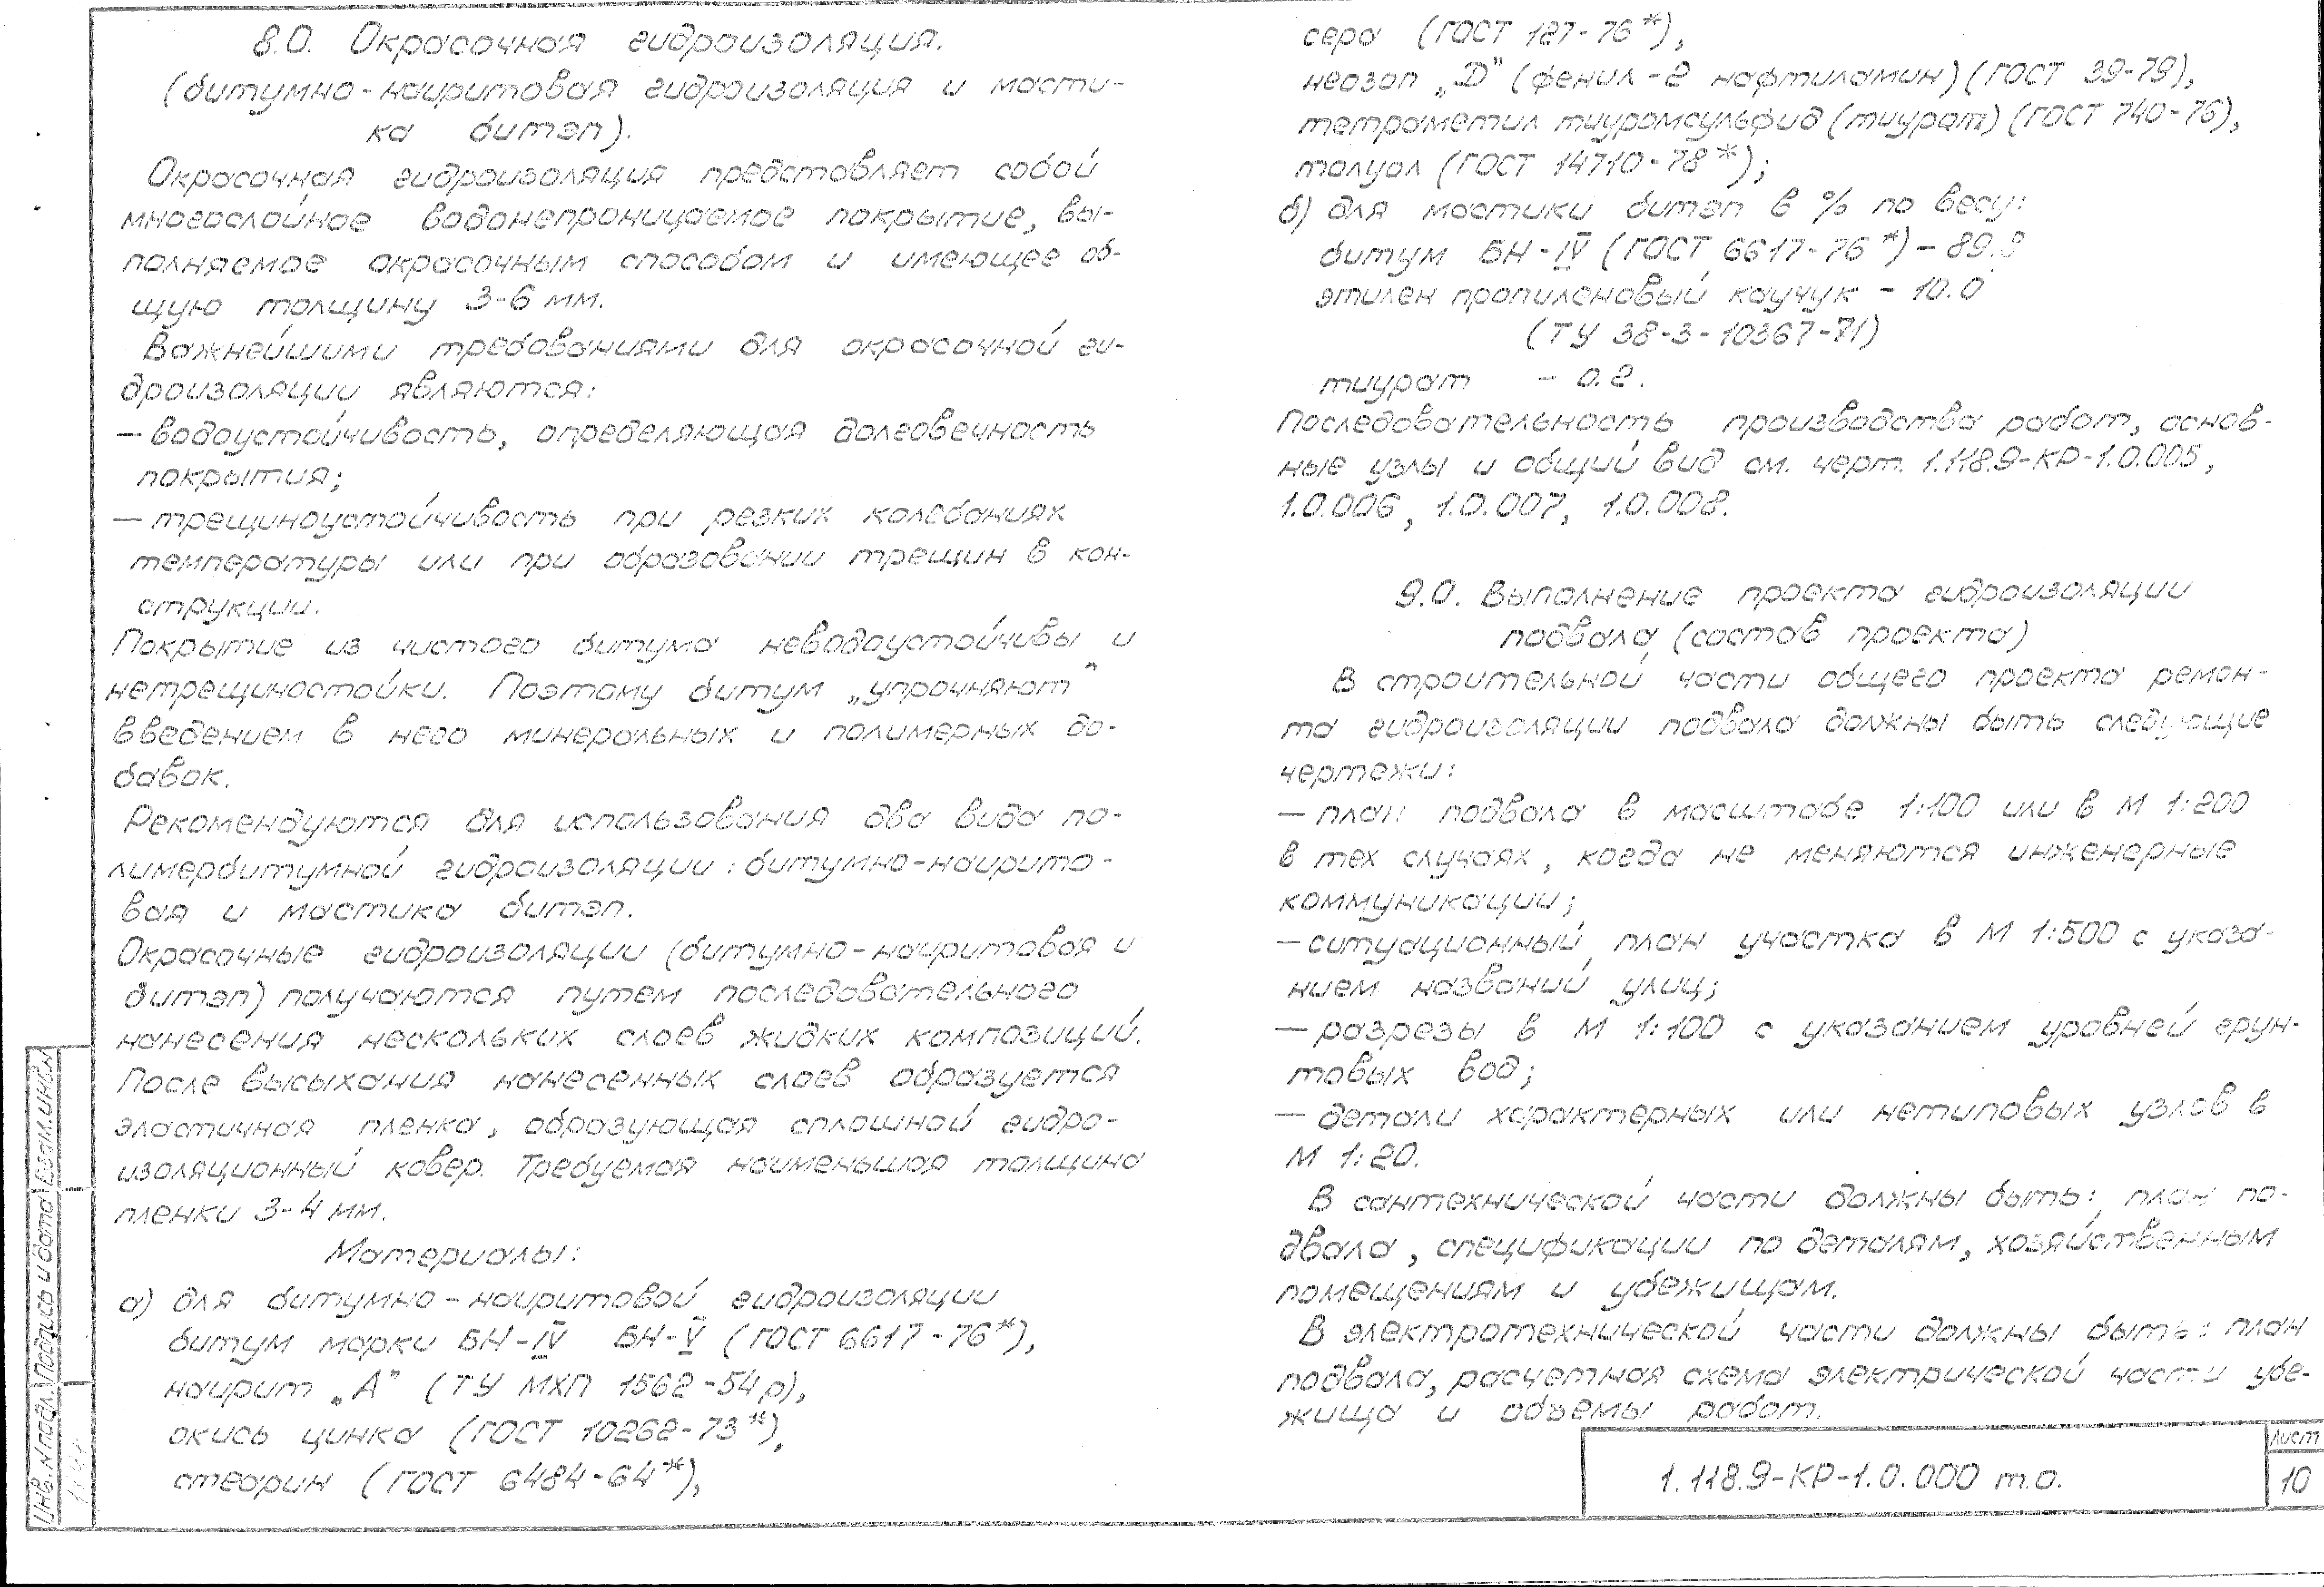 8.0. Окрасочная гидроизоляция.
(битумно-наиритовая гидроизоляция и масти-
ка битэп).
Окрасочная гидроизоляция представляет собой
многослойное водонепроницаемое покрытие, вы-
полняемое окрасочным способом и имеющее об-
щую толщину 3-6 мм.
Важнейшими требованиями для окрасочной ги-
дроизоляции являются:
— водоустойчивость, определяющая долговечность
покрытия;
— трещиноустойчивость при резких колебаниях
температуры или при образовании трещин в кон-
струкции.
Покрытие из чистого битума неводоустойчивы и
нетрещиностойки. Поэтому битум „упрочняют"
введением в него минеральных и полимерных до-
бавок.
Рекомендуются для использования два вида по-
лимербитумной гидроизоляции: битумно-наирито-
вая и мастика битэп.
Окрасочные гидроизоляции (битумно-наиритовая и
битэп) получаются путем последовательного
нанесения нескольких слоев жидких композиций.
После высыхания нанесенных слоев образуется
эластичная пленка, образующая сплошной гидро-
изоляционный ковер. Требуемая наименьшая толщина
пленки 3-4 мм.
Материалы:
а) для битумно-наиритовой гидроизоляции
битум марки БН-IV БН-V (ГОСТ 6617-76*),
наирит „А" (ТУ МХП 1562-54р),
окись цинка (ГОСТ 10262-73*),
стеарин (ГОСТ 6484-64*),
сера (ГОСТ 127-76*),
неозоп „Д" (фенил-2 нафтиламин) (ГОСТ 39-79),
тетраметил тиурамсульфид (тиурат) (ГОСТ 740-76),
толуол (ГОСТ 14710-78*);
б) для мастики битэп в % по весу:
битум БН-IV (ГОСТ 6617-76*) – 89.8
этилен пропиленовый каучук – 10.0
(ТУ 38-3-10367-71)
тиурат – 0.2.
Последовательность производства работ, основ-
ные узлы и общий вид см. черт. 1.118.9-КР-1.0.005,
1.0.006, 1.0.007, 1.0.008.
9.0. Выполнение проекта гидроизоляции
подвала (состав проекта)
В строительной части общего проекта ремон-
та гидроизоляции подвала должны быть следующие
чертежи:
— план подвала в масштабе 1:100 или в М 1:200
в тех случаях, когда не меняются инженерные
коммуникации;
— ситуационный план участка в М 1:500 с указа-
нием названий улиц;
— разрезы в М 1:100 с указанием уровней грун-
товых вод;
— детали характерных или нетиповых узлов в
М 1:20.
В сантехнической части должны быть: план по-
двала, спецификации по деталям, хозяйственным
помещениям и убежищам.
В электротехнической части должны быть: план
подвала, расчетная схема электрической части убе-
жища и объемы работ.
1.118.9-КР-1.0.000 т.о.
Лист
10
Инв. N подл. Подпись и дата Взам. инв. N